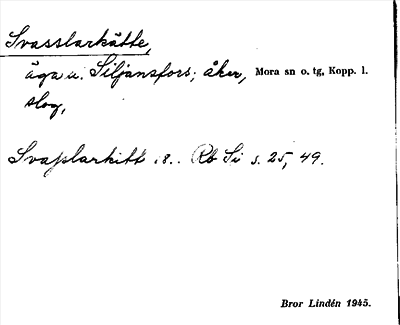 Svasslarkätte,
äga u. Siljansfors; åker, Mora sn o. tg, Kopp. l.
slog,
Svasslarkitt .8.. Rb Si s. 25, 49.
Bror Lindén 1945.